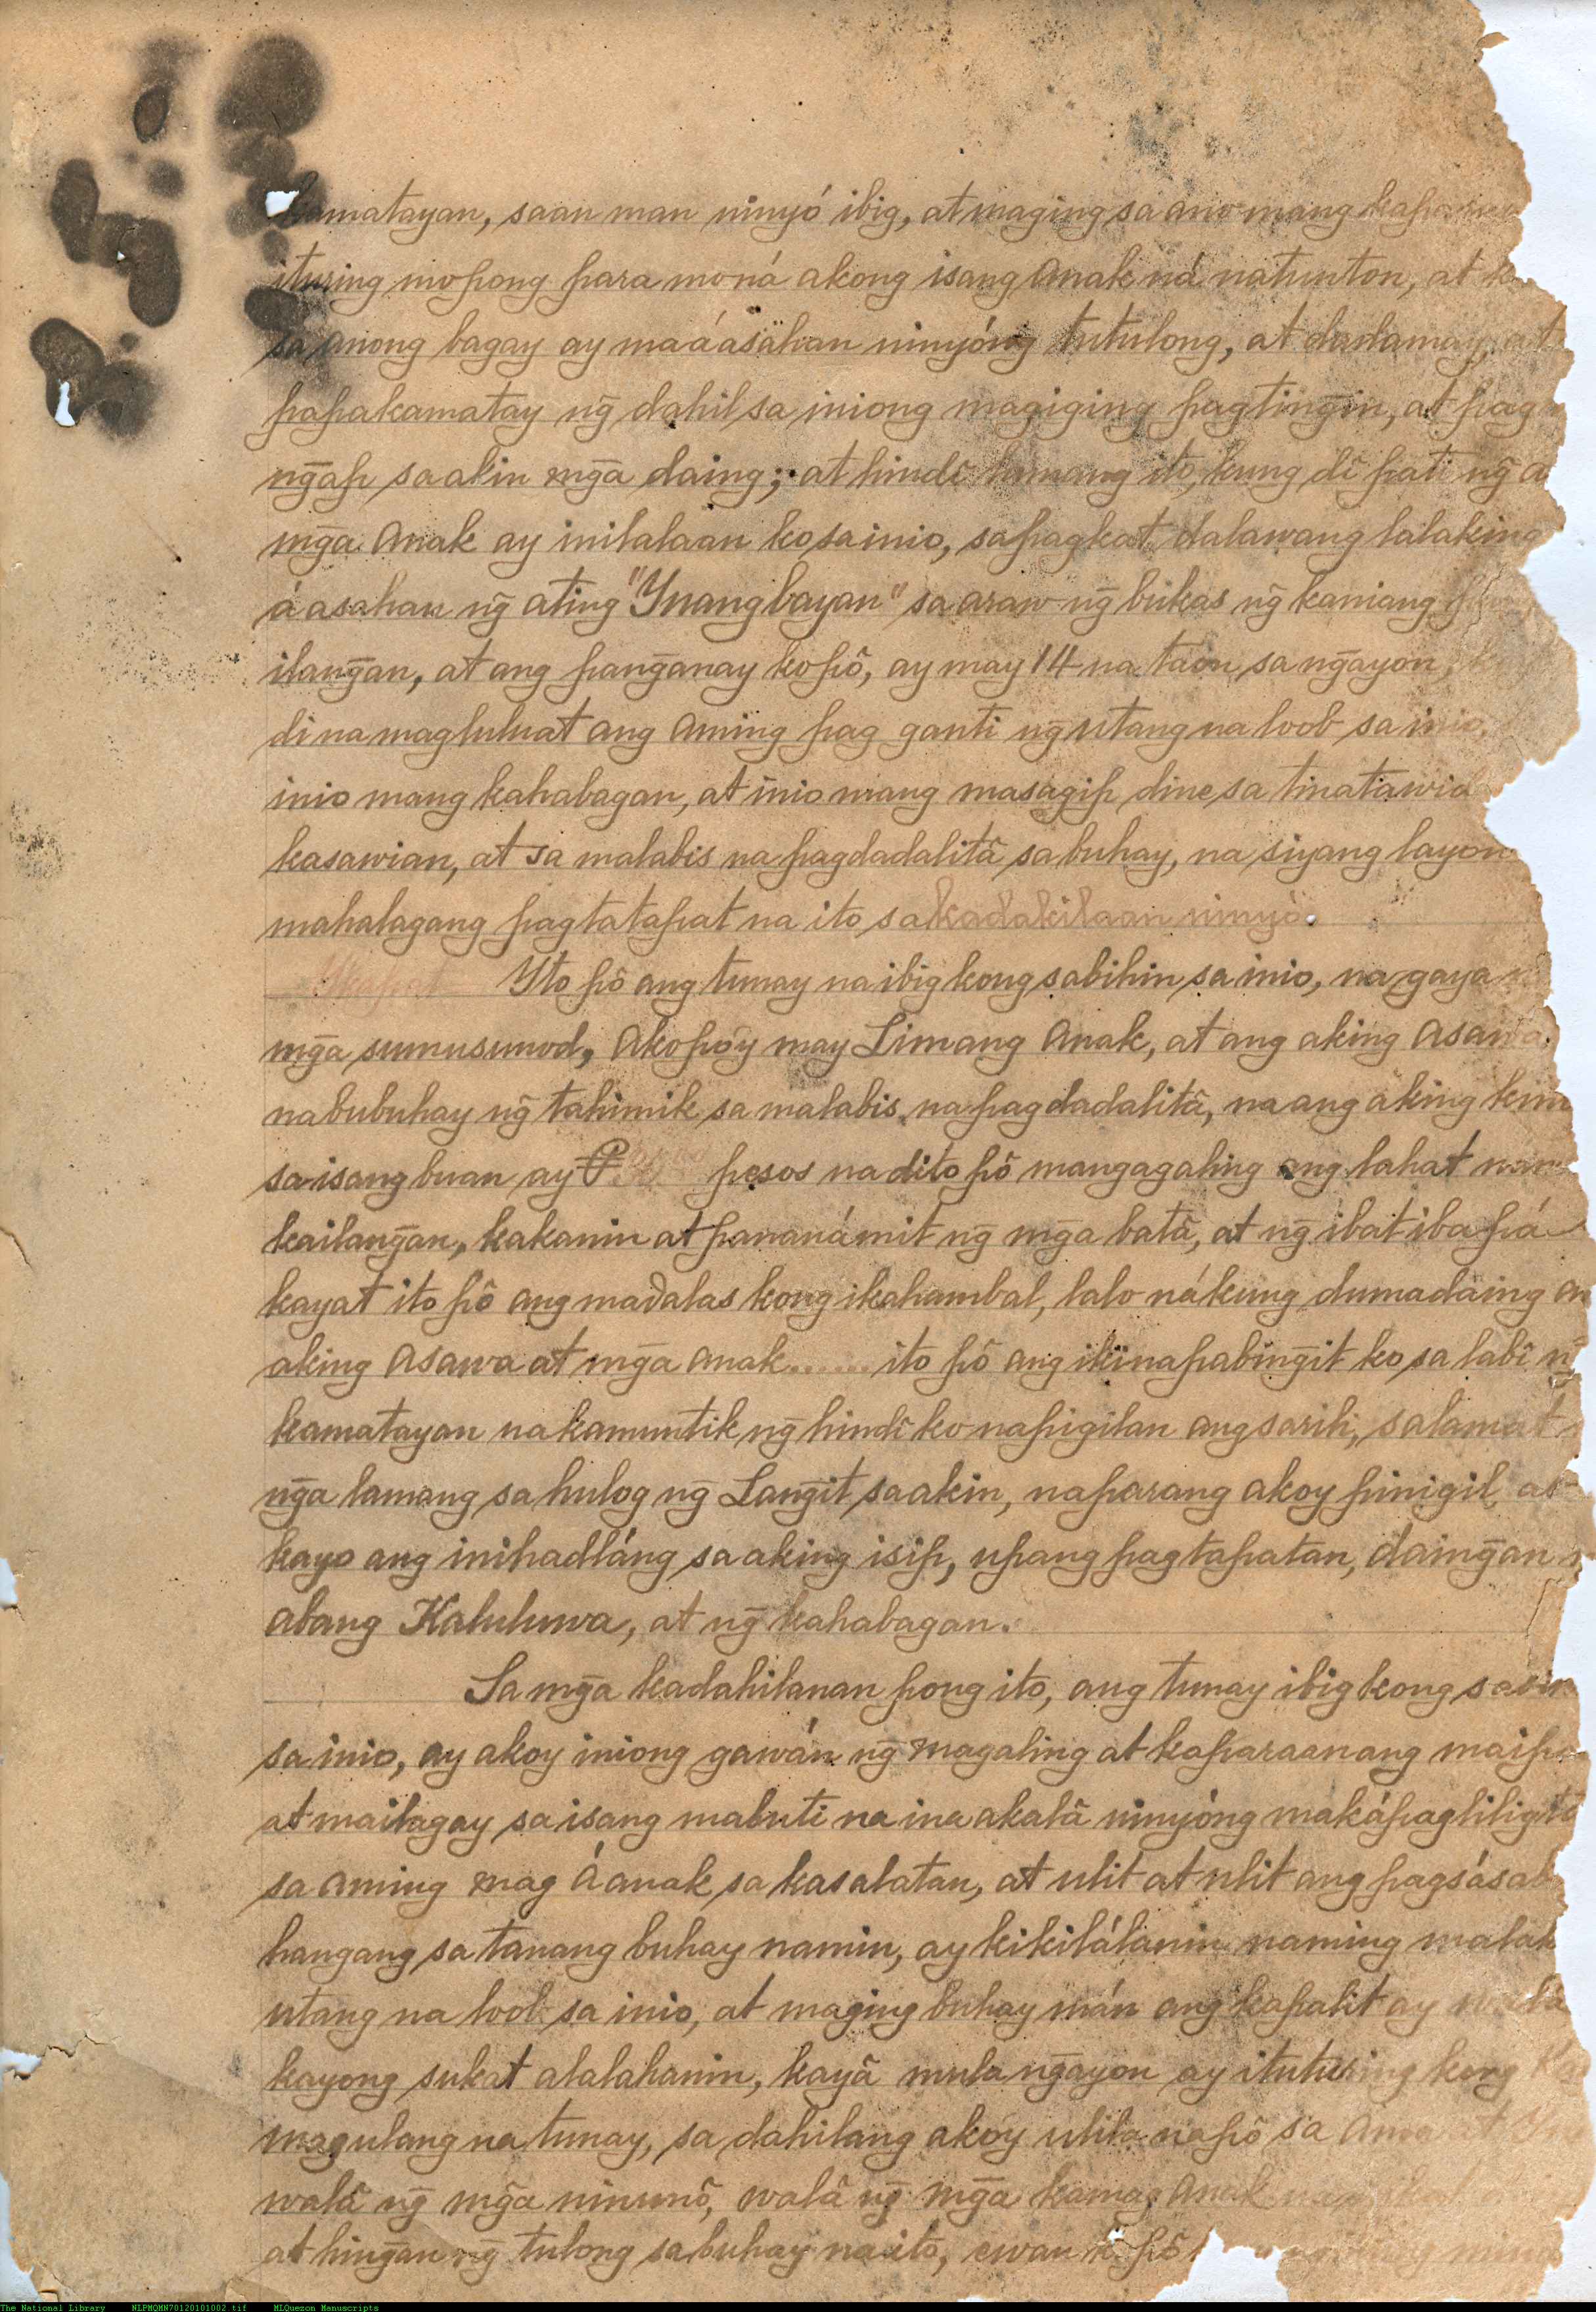 kamatayan, saan man ninyó ibig, at maging sa ano mang
ituring mo pong para mo ná akong isang Anak ná natunton, at
sa anong bagay ay maáasahan ninyóng tutulong, at dadamay, at
papakamatay ng̃ dahil sa iniong magiging pagting̃in, at pag
ng̃ap sa akin mg̃a daing; at hindî lamang ito, kung di pati ng̃
mg̃a Anak ay inilalaan ko sa inio, sapagkat dalawang lalaking
áasahan ng̃ ating "Ynang bayan" sa araw ng̃ bukas ng̃ kaniang
ilang̃an, at ang pang̃anay ko pô, ay may 14 na taon sa ng̃ayon,
di na magluluat ang Aming pag ganti ng̃ utang na loob sa inio,
inio mang kahabagan, at inio mang masagip dine sa tinatawid
kasawian, at sa malabis na pagdadalitâ sa buhay, na siyang layon
mahalagang pagtatapat na ito sa kadakilaan ninyó.
Ikapat Yto pô ang tunay na ibig kong sabihin sa inio, na gaya
mg̃a sumusunod, Ako pó'y may Limang Anak, at ang aking Asawa,
nabubuhay ng̃ tahimik sa malabis na pagdadalitâ, na ang aking
sa isang buan ay ₱ pesos na dito pô mangagaling ang lahat
kailang̃an, kakanin at pananámit ng̃ mg̃a batâ, at ng̃ ibat iba pá
kayat ito pô ang madalas kong ikahambal, lalo ná kung dumadaing
aking Asawa at mg̃a anak...... ito pô ang ikinapabing̃it ko sa labî ng̃
kamatayan na kamuntik ng̃ hindî ko napigilan ang sarili, salamat
ng̃a lamang sa hulog ng̃ Lang̃it sa akin, na parang akoy pinigil, at
kayo ang inihadláng sa aking isip, upang pagtapatan, daing̃an
abang Kaluluwa, at ng̃ kahabagan.
Sa mg̃a kadahilanan pong ito, ang tunay ibig kong
sa inio, ay akoy iniong gawán ng̃ magaling at kaparaanang
at mailagay sa isang mabuti na ina akalâ ninyóng makápagliligtas
sa Aming mag Áanak sa kasalatan, at ulit at ulit ang
hangang sa tanang buhay namin, ay kikilálanin naming
utang na loob sa inio, at maging buhay mán ang kapalit ay walâ
kayong sukat alalahanin, kayâ mula ng̃ayon ay ituturing kong
magulang na tunay, sa dahilang akoy ulila na pô sa Ama at
walâ ng̃ mg̃a ninunô, walâ ng̃ mg̃a kamag Anak
at hing̃an ng̃ tulong sa buhay na ito, ewan pô
The National Library NLPMQMN70120101002.tif MLQuezon Manuscripts